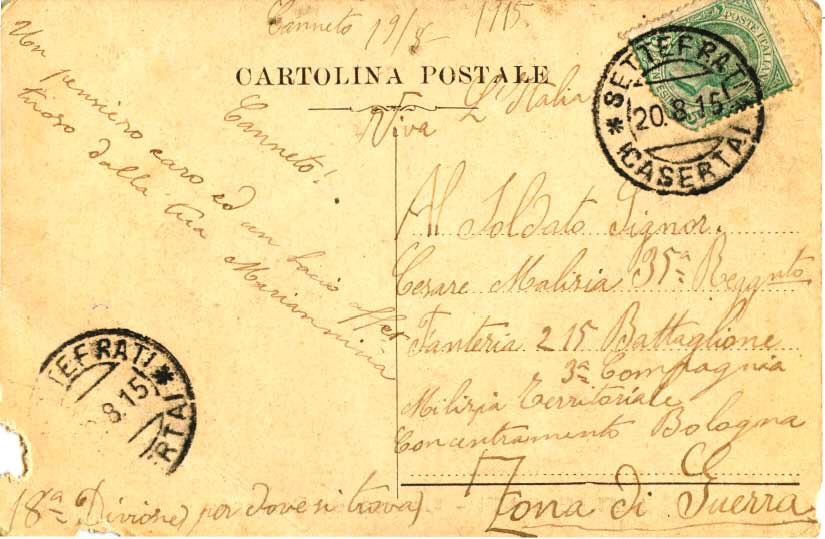 Canneto 19/8 1915.
CARTOLINA POSTALE
Viva L'Italia
POSTE ITALIANE
* SETTEFRATI *
20.8.15
(CASERTA)
Canneto!
Un pensiero caro ed un bacio affet
tuoso dalla tua Mariannina
Al Soldato Signor.
Cesare Malizia 35ª Reggnto
Fanteria 215 Battaglione
3ª Compagnia
Milizia Territoriale
Concentramento Bologna
Zona di Guerra
18ª Divisione) per dove si trova)
TEFRATI *
8.15
RTA)